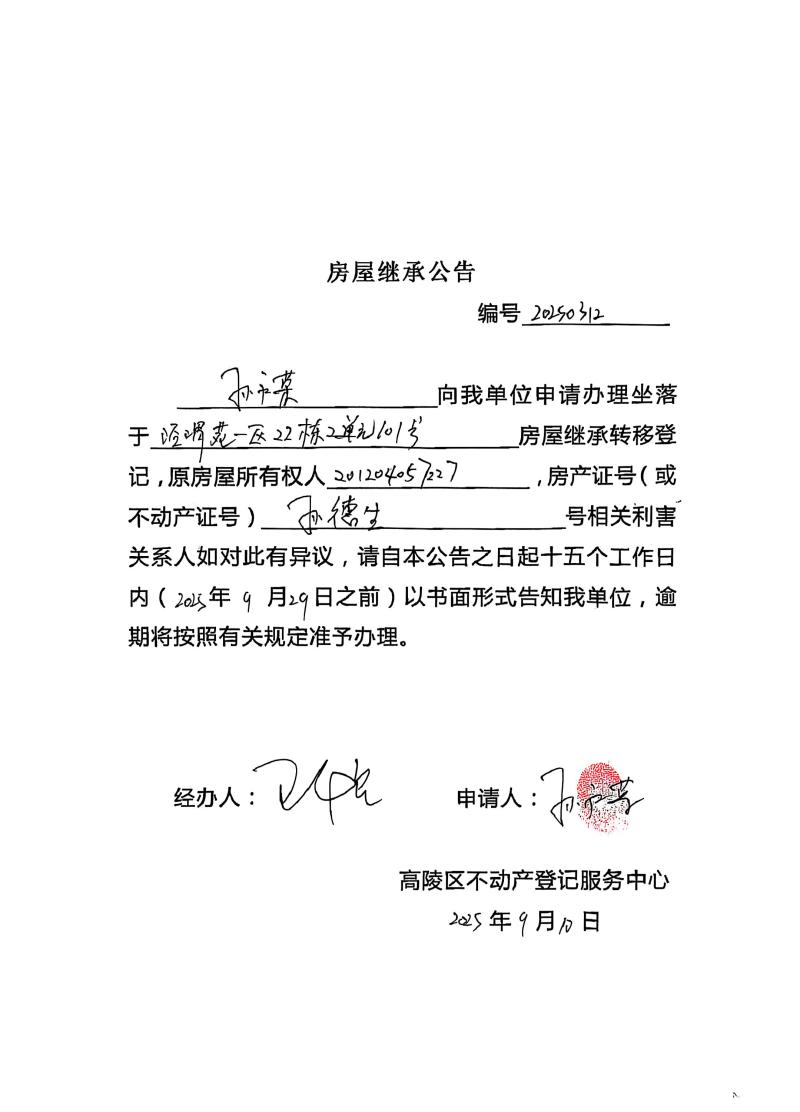 房屋继承公告
编号 20250312
孙 向我单位申请办理坐落
于 泾渭苑一区22栋2单元101号 房屋继承转移登
记，原房屋所有权人 201204057227 ，房产证号（或
不动产证号） 孙德生 号相关利害
关系人如对此有异议，请自本公告之日起十五个工作日
内（2025年 9 月29日之前）以书面形式告知我单位，逾
期将按照有关规定准予办理。
经办人：
申请人：孙
高陵区不动产登记服务中心
2025 年 9 月10 日